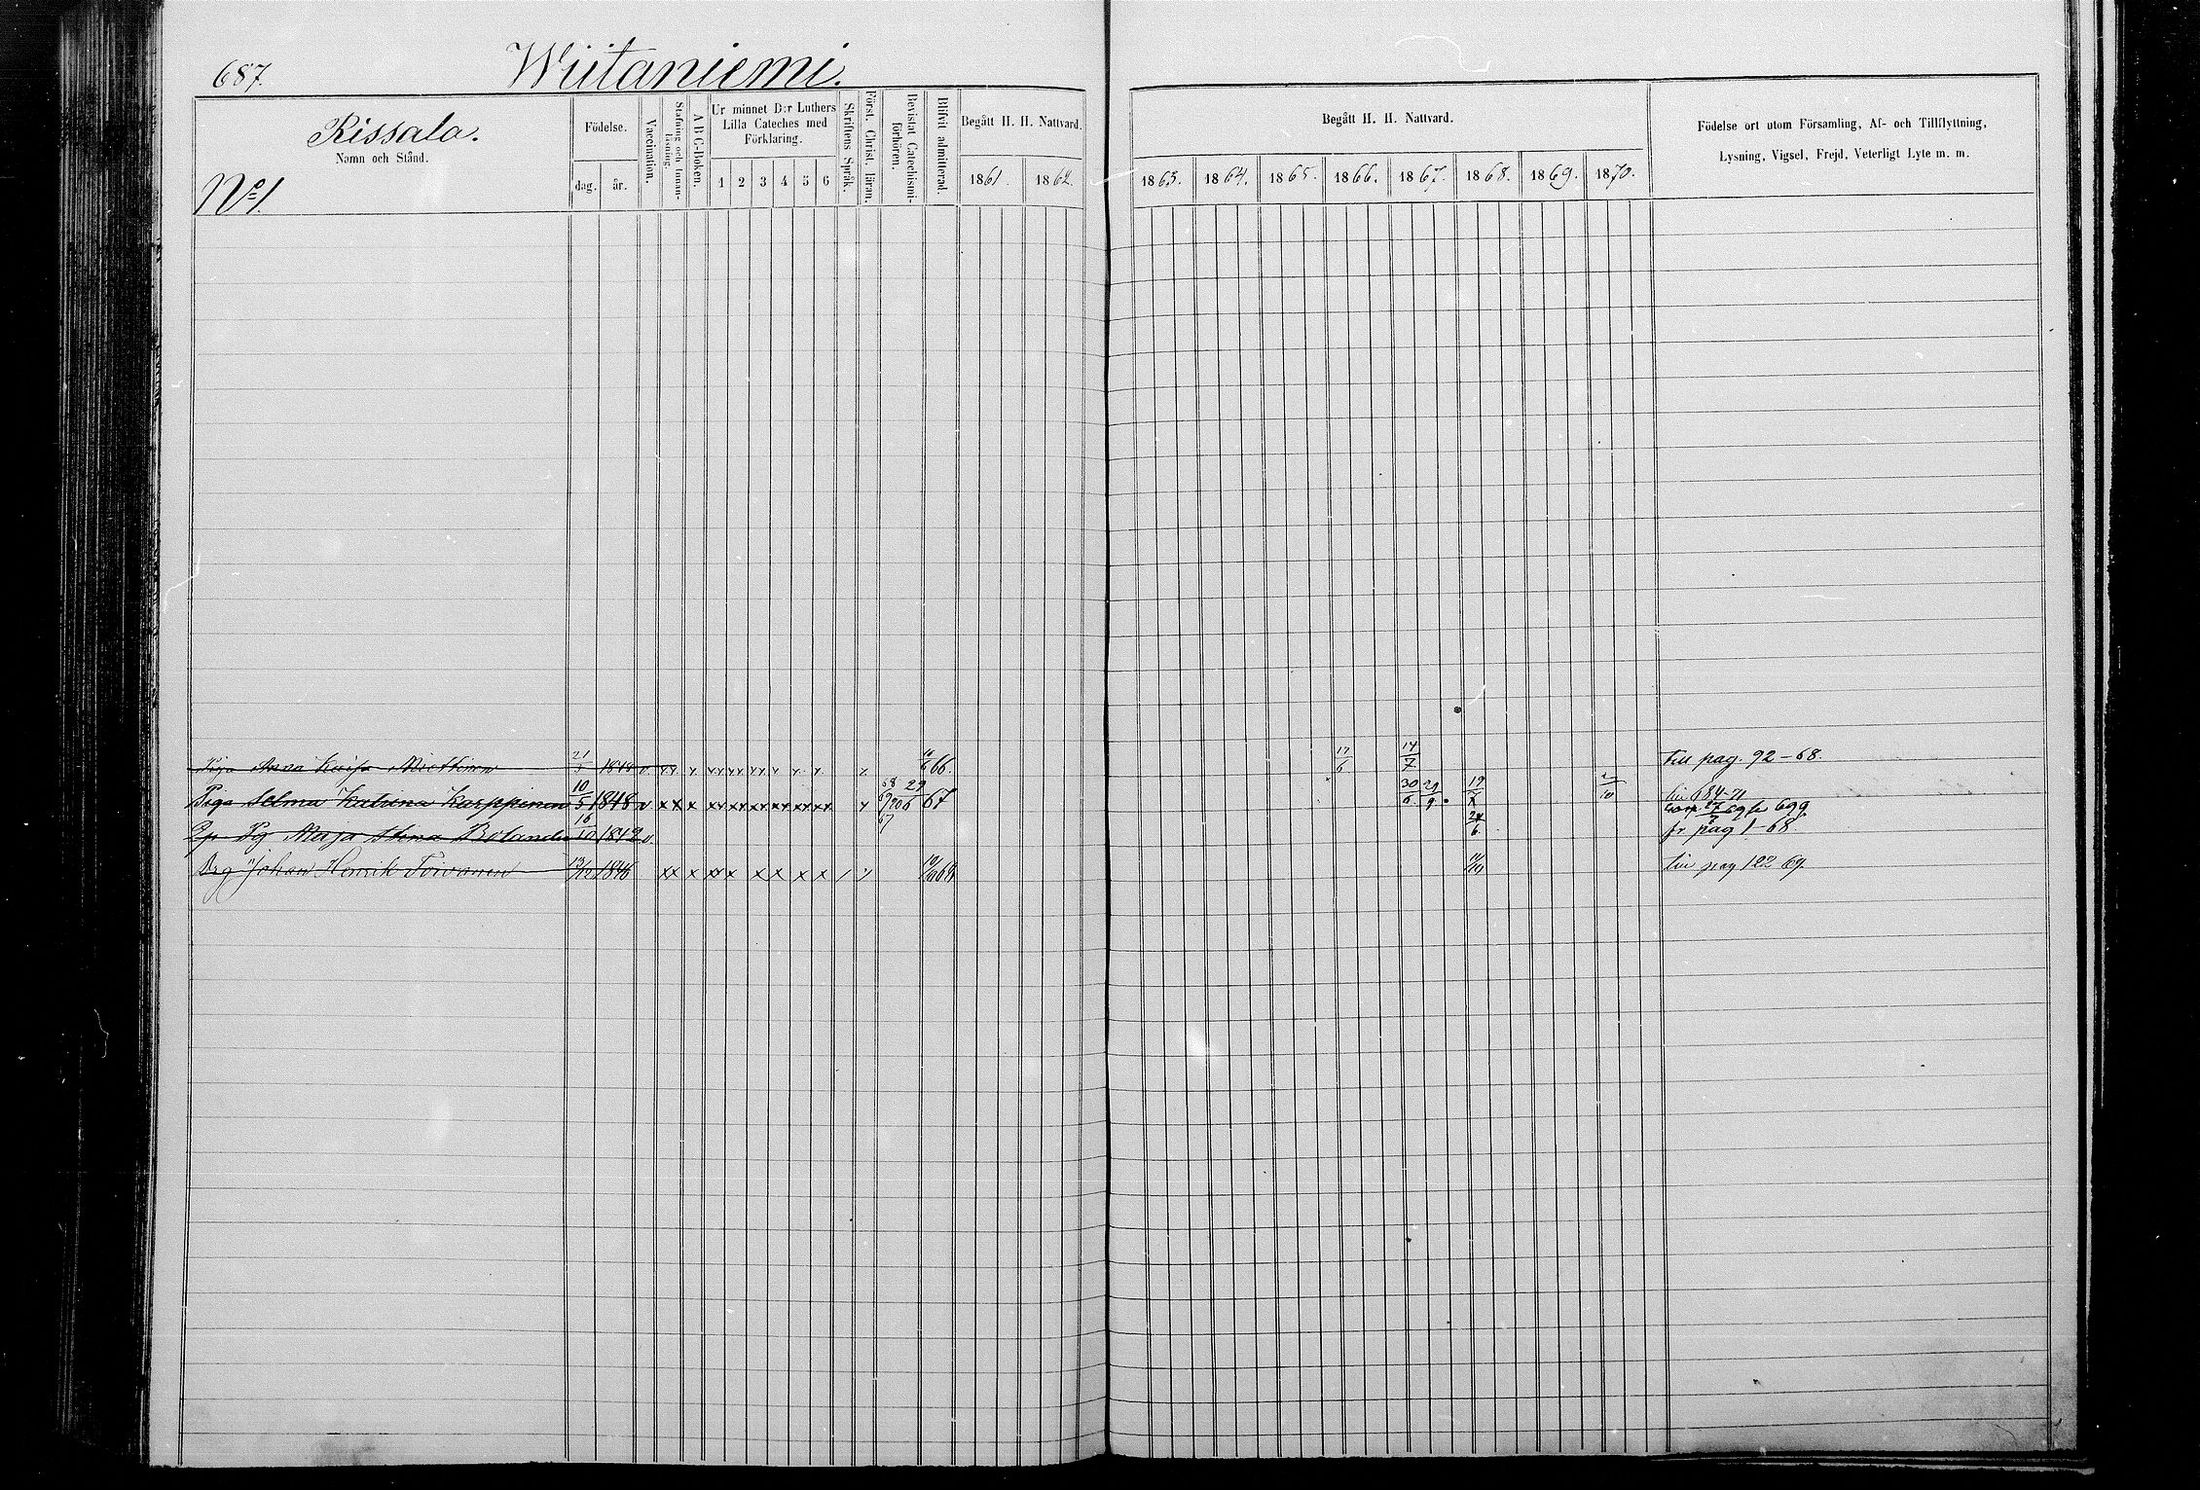 687.
Wiitaniemi.
Kissala.
Namn och Stånd.
No 1.
Födelse.
dag. år.
Vaccination.
Stafning och Innan-läsning.
A B C-Boken.
Ur minnet D:r Luthers
Lilla Cateches med
Förklaring.
1 2 3 4 5 6
Skriftens Språk.
Först. Christ. läran.
Bevistat Catechismi-förhören.
Blifvit admitterad.
Begått H. H. Nattvard.
1861. 1862.
Begått H. H. Nattvard.
1863. 1864. 1865. 1866. 1867. 1868. 1869. 1870.
Födelse ort utom Församling, Af- och Tillflyttning,
Lysning, Vigsel, Frejd, Veterligt Lyte m. m.
Piga Anna Kaisa Miettinen 21/5 1848 v 66. 17/6 14/7 till pag. 92-68.
Piga Selma Katrina Karppinen 10/5 1848 v xx x 68 69 70 67 29/6 67 30/6. 29/9. 19/7 /10 till 684-71
Maja Stina Bolander 16/10 1849 v. 24/6. fr pag 1-68.
Drg Johan Henrik Toivonen 13/12 1846 xx x xx x x x x x 11/10 till pag 122 69.